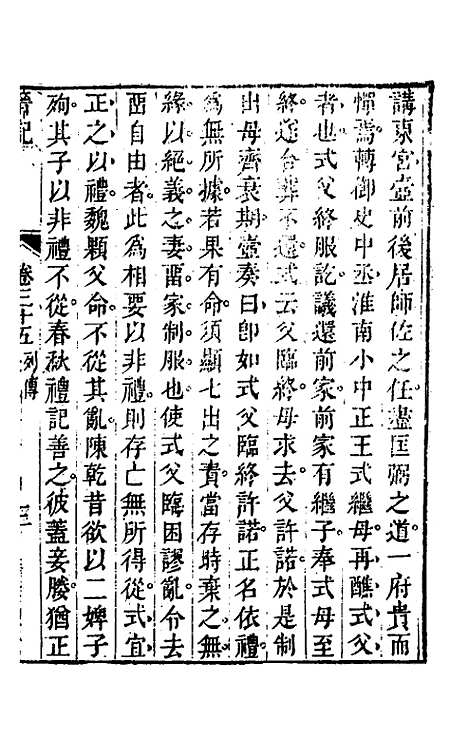 講東宮壼前後居師佐之任盡匡弼之道一府貴而
憚焉轉御史中丞淮南小中正王式繼母再醮式父
者也式父終服訖議還前家前家有繼子奉式母至
終遂合葬不還式云父臨終母求去父許諾於是制
出母齊衰期壼奏曰卽如式父臨終許諾正名依禮
爲無所據若果有命須顯七出之責當存時棄之無
緣以絕義之妻畱家制服也使式父臨困謬亂令去
畱自由者此爲相要以非禮則存亡無所得從式宜
正之以禮魏顆父命不從其亂陳乾昔欲以二婢子
殉其子以非禮不從春秋禮記善之彼蓋妾媵猶正
晉記
卷三十五列傳